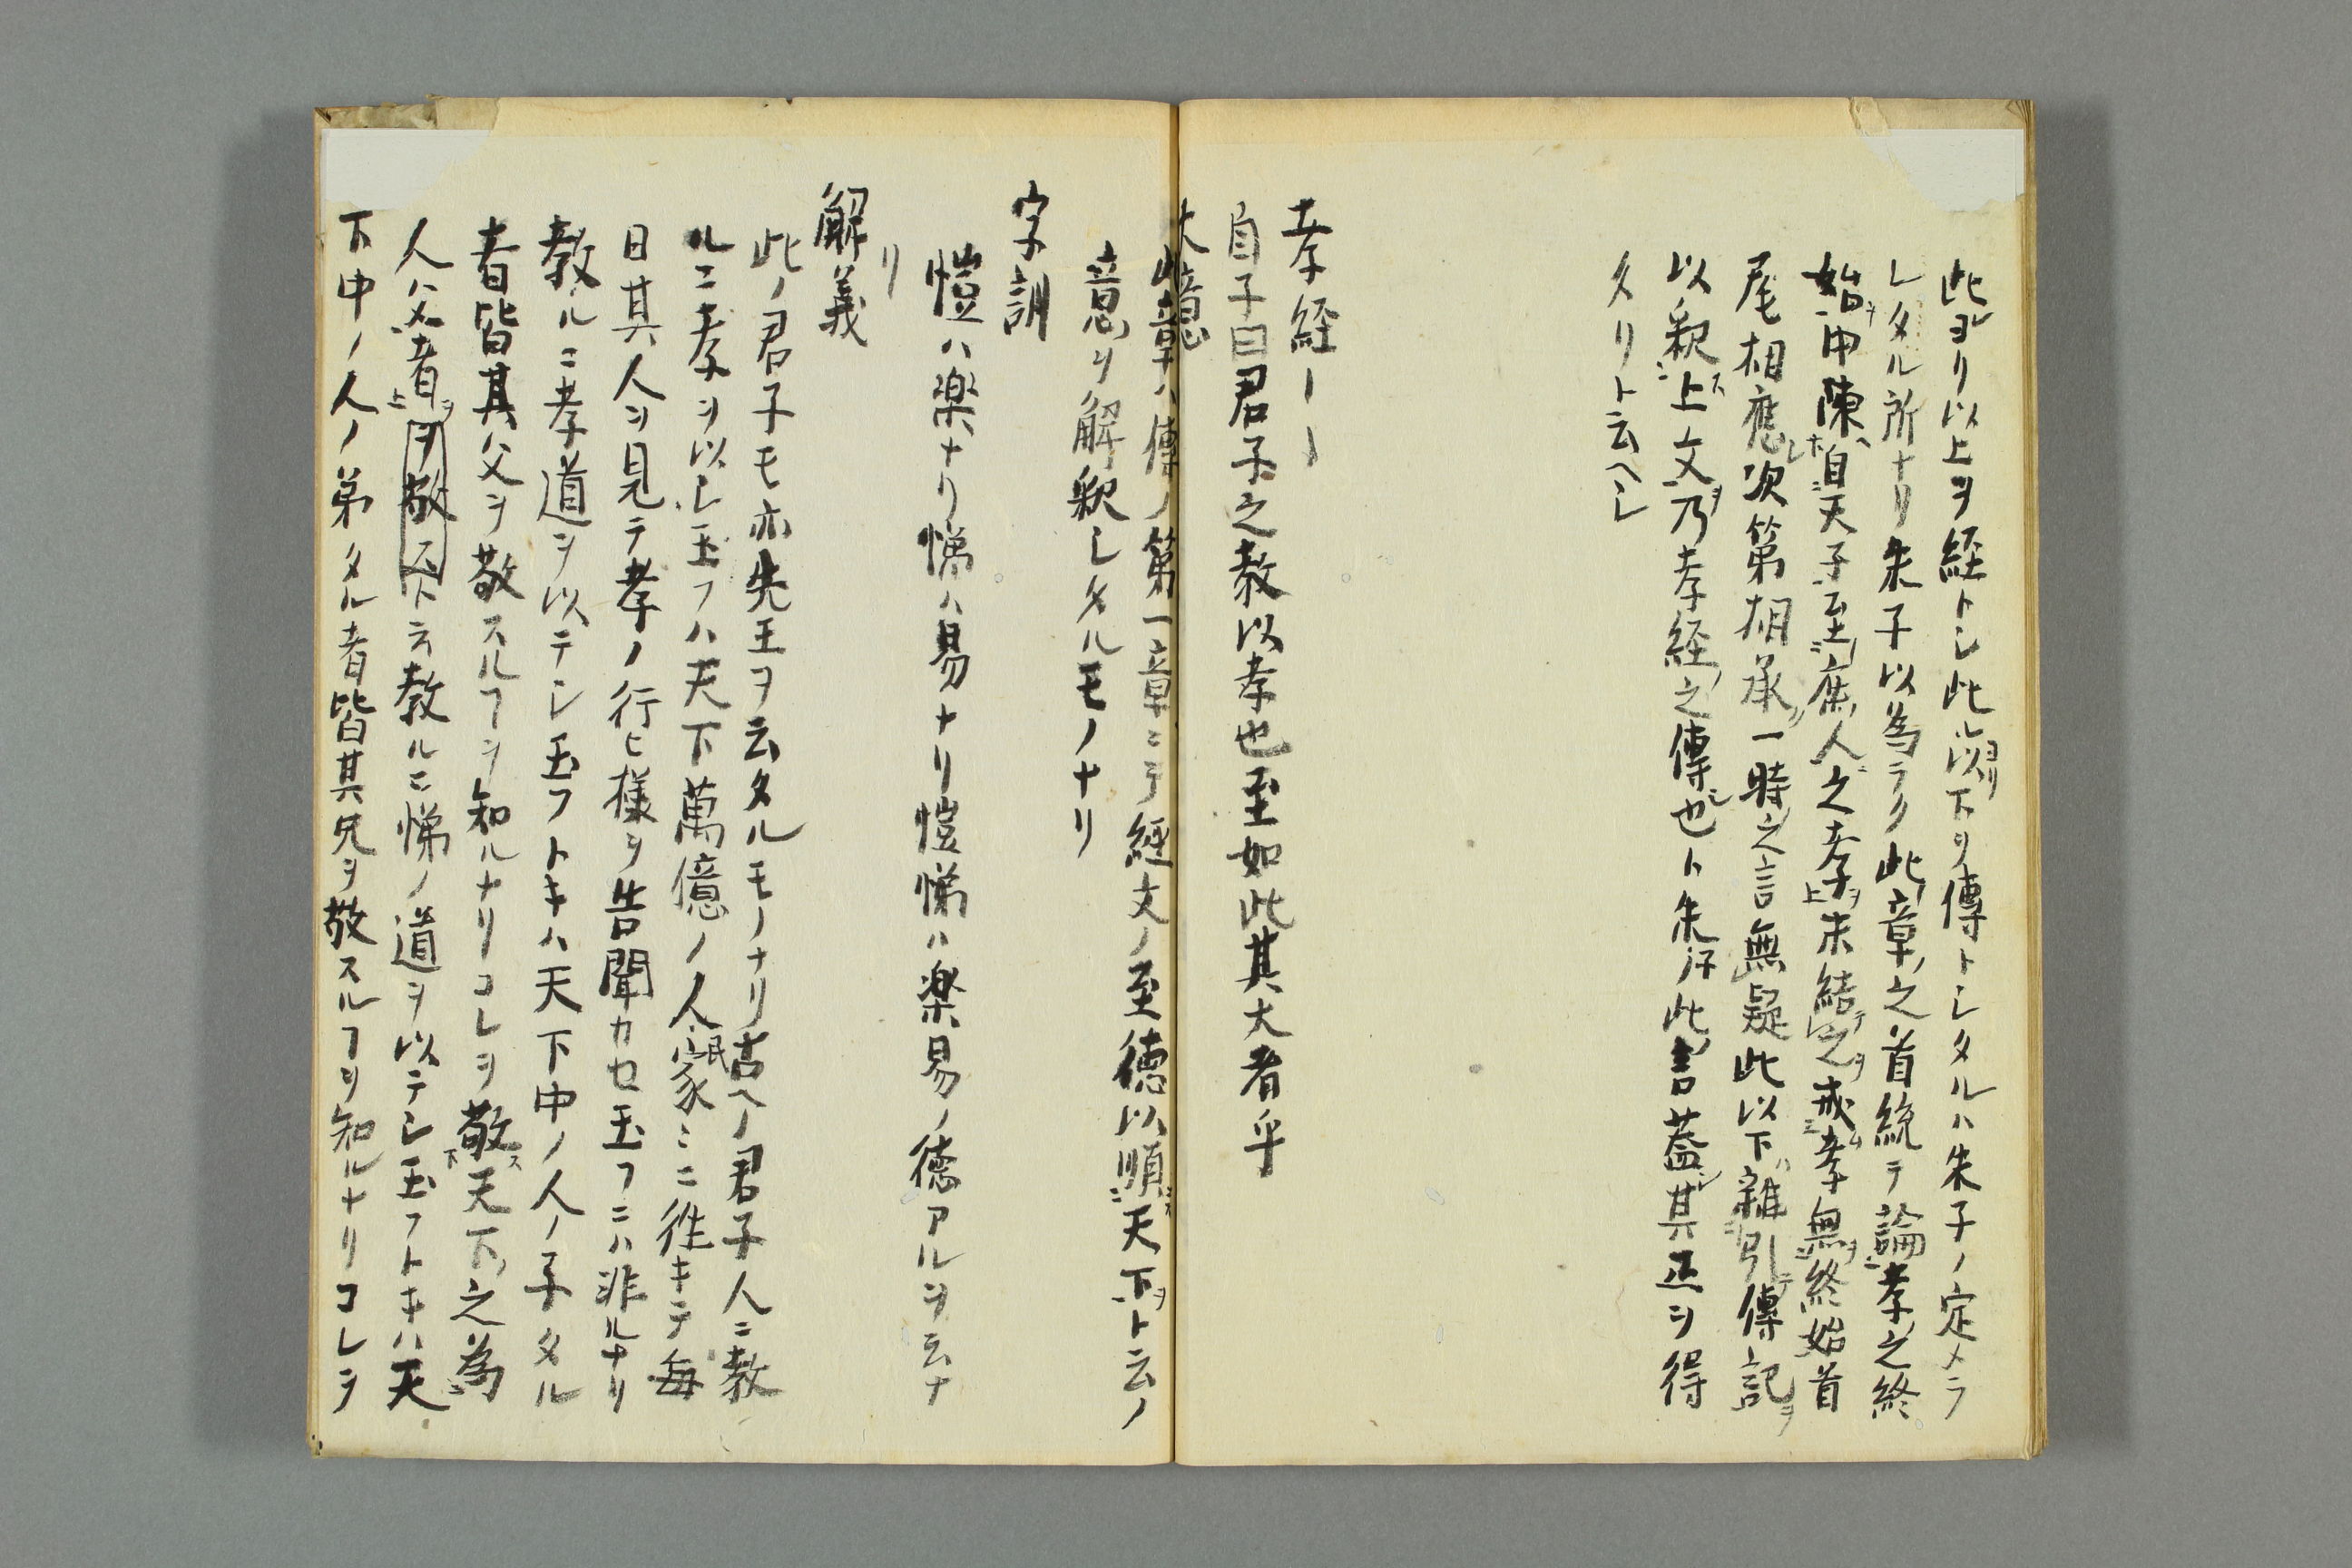 此レヨリ以上ヲ経トシ此レヨリ以下ヲ傳トシタルハ朱子ノ定メラ
レタル所ナリ朱子以為ラク此章之首統テ論孝之終
始ヲ中陳自天子至庶人之孝ヲ末結之ヲ戒孝無終始首
尾相應次第相承一時之言無疑此以下雑引傳記ヲ
以釈ス上文ヲ乃孝経之傳也ト朱子此ノ言蓋シ其正ヲ得
タリト云ヘシ
孝経ーー
自子曰君子之教以孝也至如此其大者乎
大意
此章ハ傳ノ第一章ニテ經文ノ至徳以順天下ヲト云ノ
意ヲ解釈シタルモノナリ
字訓
愷ハ楽ナリ悌ハ易ナリ愷悌ハ楽易ノ徳アルヲ云ナ
リ
解義
此ノ君子モ亦先王ヲ云タルモノナリ古ヘノ君子人ニ教
ルニ孝ヲ以シ玉フハ天下萬億ノ人民家ミニ徃キテ毎
日其人ヲ見テ孝ノ行ヒ様ヲ告聞カセ玉フニハ非ルナリ
教ルニ孝道ヲ以テシ玉フトキハ天下中ノ人ノ子タル
者皆其父ヲ敬スルヿヲ知ルナリコレヲ敬ス天下之為
人ハ父者ヲヲ敬スト云教ルニ悌ノ道ヲ以テシ玉フトキハ天
下中ノ人ノ弟タル者皆其兄ヲ敬スルヿヲ知ルナリコレヲ